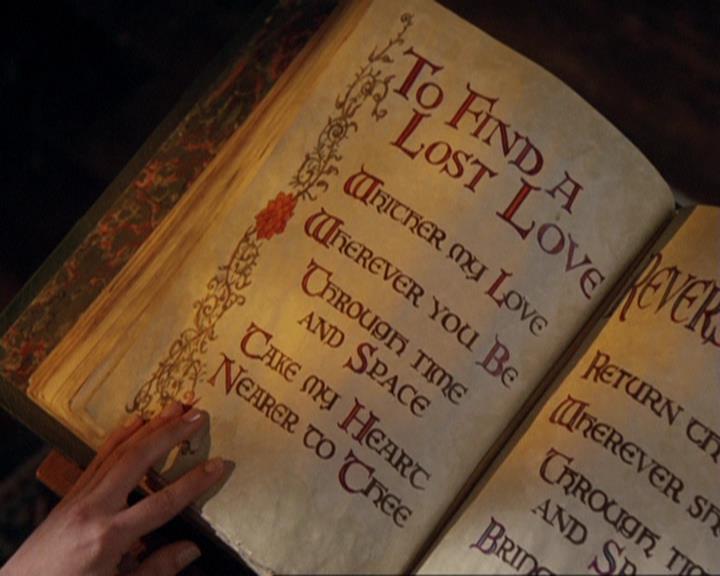 To Find a
Lost Love
Whither my Love
Wherever you Be
Through time
and Space
Take my Heart
Nearer to Thee
Return
Wherever
Through
and